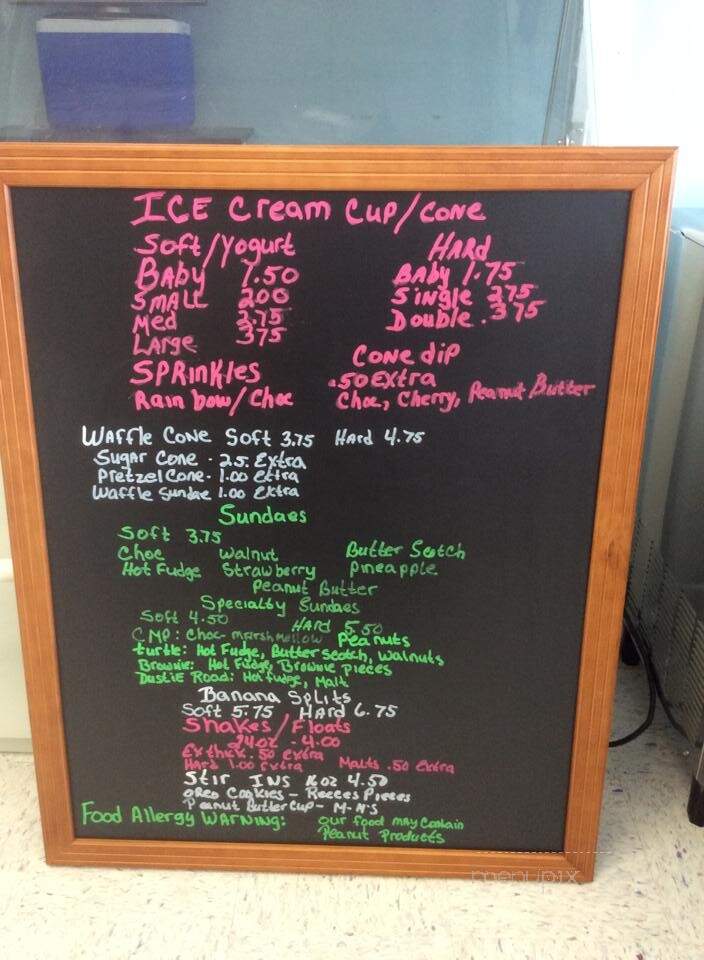 ICE Cream Cup/Cone
Soft/Yogurt HARD
BABY 1.50 BABY 1.75
SMALL 200 Single 275
Med 2.75 Double .375
LARGE 375
Cone dip
SPRinkles .50 Extra
Rainbow/Choc Choc, Cherry, Peanut Butter
WAFFle CoNe Soft 3.75 Hard 4.75
Sugar Cone - .25. Extra
Pretzel Cone - 1.00 Extra
Waffle Sundae 1.00 Extra
Sundaes
Soft 3.75
Choc Walnut Butter Scotch
Hot Fudge Strawberry Pineapple
Peanut Butter
Specialty Sundaes
Soft 4.50 HARd 5.50
CMP: Choc- marshmellow Peanuts
turtle: Hot Fudge, Butter Scotch, Walnuts
Brownie: Hot Fudge, Brownie pieces
Dustie Road: Hot fudge, Malt
Banana Splits
Soft 5.75 Hard 6.75
Shakes/Floats
24oz - 4.00
Ex thick .50 extra
Hard 1.00 extra Malts .50 Extra
Stir INS 16oz 4.50
oReo Cookies - Reeces Pieces
Peanut Butter Cup - M-N'S
Food Allergy WARNING: our food may Contain
Peanut Products
menupix